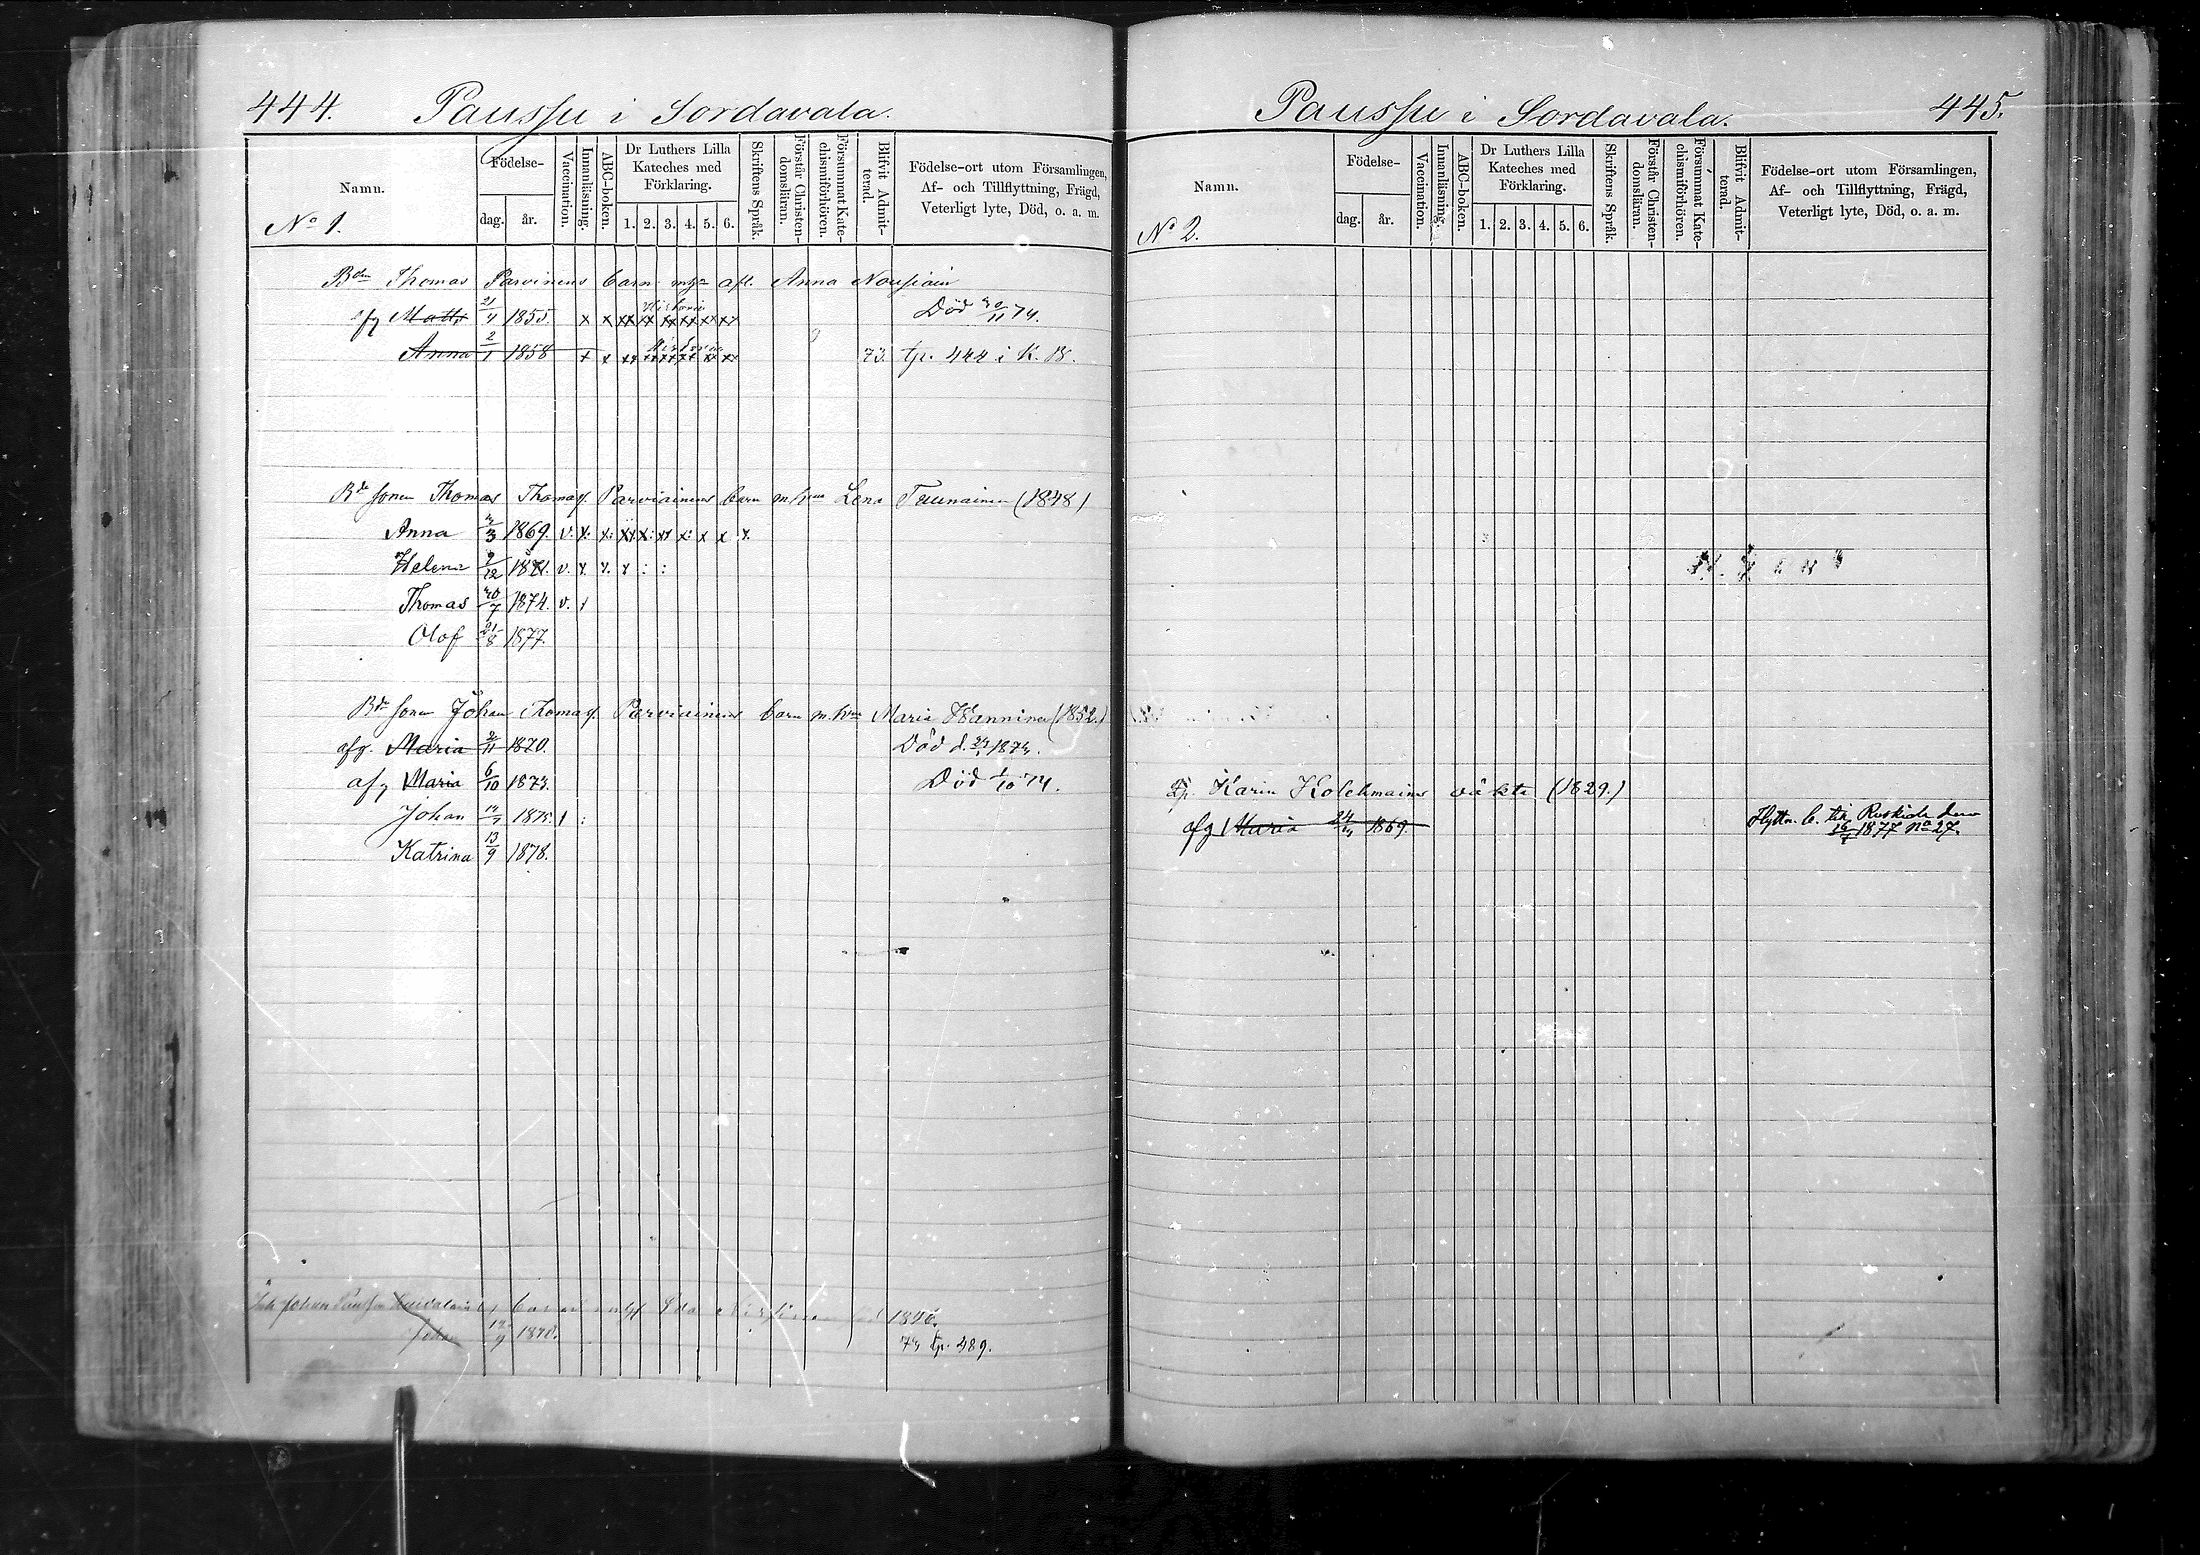 444. Paussu i Sordavala.
Namn.
Födelse-
dag.
år.
Vaccination.
Innanläsning.
ABC-boken.
Dr Luthers Lilla
Kateches med
Förklaring.
1. 2. 3. 4. 5. 6.
Skriftens Språk.
Förstår Christen-
domsläran.
Försummat Kate-
chismiförhören.
Blifvit Admit-
terad.
Födelse-ort utom Församlingen,
Af- och Tillflyttning, Frägd,
Veterligt lyte, Död, o. a. m.
No 1.
Bdn Thomas Parvinens barn afl. Anna
Matts 1855. x x xx xx xx xx xx xx Död
Anna 2/1 1858 x x xx xx xx xx xx xx 73. tp. 444 i K. B.
Bde sonen Thomas Thomass. Parviainens barn m. hru Lena Taunainen (1848)
Anna 1869. v. x. x: xx x: xx x: x x x.
Helena 9/12 1871. v. x. x. x : :
Thomas 1874. v.
Olof 21/8 1877.
Bde sonen Johan Thomass. Parviainens barn m. hru Maria Hanninen (1852.)
afg. Maria 2/11 1870. Död d. 1873.
afg Maria 6/10 1873. Död 1/10 74.
Johan 1875. :
Katrina 13/9 1878.
Johan 1840.
73 tp. 489.
Paussu i Sordavala. 445.
Namn.
Födelse-
dag.
år.
Vaccination.
Innanläsning.
ABC-boken.
Dr Luthers Lilla
Kateches med
Förklaring.
1. 2. 3. 4. 5. 6.
Skriftens Språk.
Förstår Christen-
domsläran.
Försummat Kate-
chismiförhören.
Blifvit Admit-
terad.
Födelse-ort utom Församlingen,
Af- och Tillflyttning, Frägd,
Veterligt lyte, Död, o. a. m.
No 2.
Karin Kolehmains oäkta (1829.)
afg Maria 1869. Flyttn. b. till Ruskiala
1877 No 27.